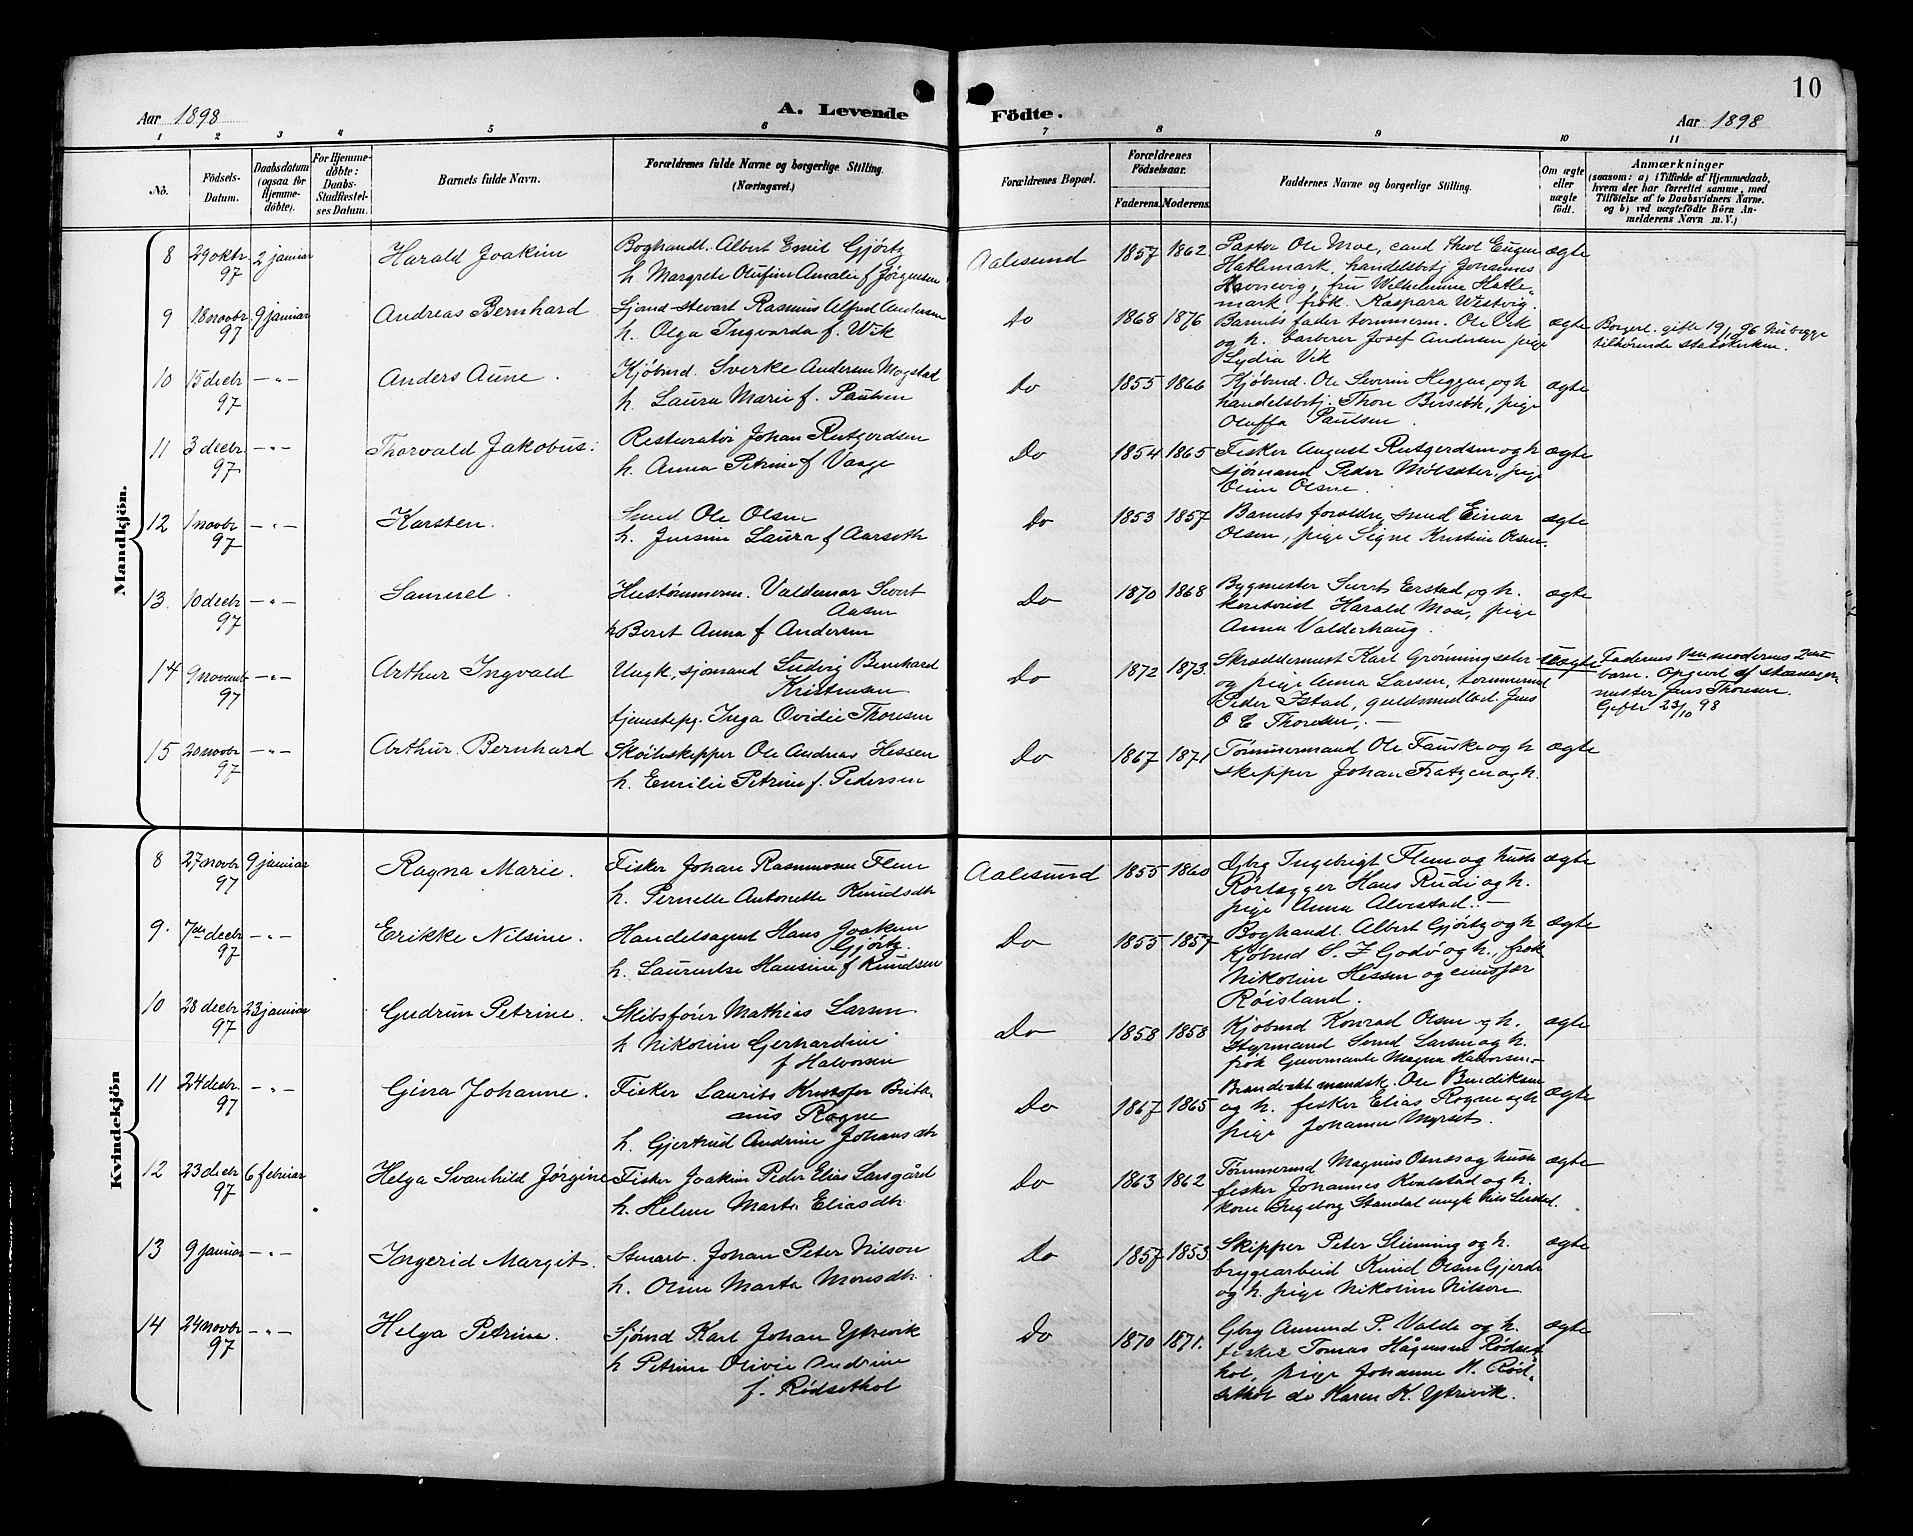 10
Aar 1898 A. Levende Födte. Aar 1898
1 2 3 4 5 6 7 8 9 10 11
No. Födsels-Datum. Daabsdatum (ogsaa for Hjemme-döbte). For Hjemme-döbte: Daabs-Stadfæstel-ses Datum. Barnets fulde Navn. Forældrenes fulde Navne og borgerlige Stilling. (Næringsvei.) Forældrenes Bopæl. Forældrenes Födselsaar. Faderens. Moderens. Faddernes Navne og borgerlige Stilling. Om ægte eller uægte födt. Anmærkninger (saasom: a) i Tilfælde af Hjemmedaab, hvem der har forrettet samme, med Tilföielse af to Daabsvidners Navne, og b) ved uægtefödte Börn An-melderens Navn m. V.)
Mandkjön.
8 29 oktbr 97 2 januar Harald Joakim Boghandl. Albert Emil Gjørtz
h. Margrete Olufine Amalie f Jørgensen
Aalesund 1857 1862 Pastor Ole Moe, cand theol Eugen ægte
Hatlemark, handelsbetj Johannes
fru Wilhelmine Hatle-
mark frøk. Kaspara Westvig.
9 18 novbr 97 9 januar Andreas Bernhard Sjømd-stevart Rasmus Alfred Andersen
h. Olga Ingvarda f. Wik
do 1868 1876 Barnets fader tømmerm. Ole Vik ægte
og h. barberer Josef Andersen pige
Lydia Vik
Borgerl. gifte
tilhørende statskirken.
10 15 decbr 97 -"- Anders Aune. Kjøbmd. Sverke Andersen Mogstad
h. Laura Marie f. Paulsen
Do 1855 1866 Kjøbmd. Ole Severin Heggen og h ægte
handelsbetj. Thore pige
Oluffa Paulsen.
11 3 decbr 97 -"- Thorvald Jakobus. Restauratør Johan Rutgerdsen
h. Anna Petrine f Vaage
Do 1854 1865 Fisker August Rutgerdsen og h ægte
sjømand Peder Molsæter, pige
Oline Olsen.
12 1 novbr 97 -"- Karsten. Smed Ole Olsen
h. Jensine Laura f Aarseth
Do 1853 1857 Barnets forældre, smed Einar ægte
Olsen, pige Signe Kristine Olsen.
13. 10 decbr 97 -"- Samuel. Hustømmerm. Valdemar Sivert
Aasen
h Beret Anna f Andersen
Do 1870 1868 Bygmester Sivert Erstad og h. ægte
kontorist Harald Moa, pige
Anna Valderhaug.
14 9 novembr 97 -"- Arthur Ingvald Ungk. sjømand Ludvig Bernhard
Kristensen
tjenestepg. Inga Ovidie Thoresen
Do 1872 1873. Skræddermest Karl Grønningsæter uægte
og pige Anna Larsen, tømmermd
Peder Istad, guldsmedlærl. Jens
O E Thoresen.-
Faderens 1ste moderens 2det
barn. Opgivet af skomager-
mester Jens Thoresen.
Gifter 23/10 98
15 20 novbr 97 -"- Arthur Bernhard Skøiteskipper Ole Andreas Hessen
h. Emilie Petrine f. Pedersen
Do 1867 1871. Tømmermand Ole Fauske og h ægte
skipper Johan Fratzen og h.
Kvindekjön
8 27 novbr 97 9 januar Ragna Marie. Fisker Johan Rasmussen Flem
h. Pernelle Antonette Knudsdtr
Aalesund 1855 1860 Gbrg Ingebrigt Flem og hustr ægte
Rørlægger Hans Rudi og h.
pige Anna Alvestad.-
9. 7de decbr 97 -"- Erikke Nilsine. Handelsagent Hans Joakim
Gjørtz.
h. Laurentse Hansine f Knudsen
Do 1855 1857 Boghandl. Albert Gjørtz og h ægte
Kjøbmd S. Z Godø og h., frøk
Nikoline Hessen og
Røisland.
10 28 decbr 97 23 januar Gudrun Petrine. Skibsfører Mathias Larsen
h Nikoline Gerhardine
f Halvorsen
Do 1858 1858 Kjøbmd Konrad Olsen og h. ægte
Styrmand Larsen og h.
frøk Guvernante Magna Halvorsen.-
11 24 decbr. 97 -"- Gina Johanne. Fisker Laurits Kristofer Brita-
nus Rogne
h. Gjertrud Andrine Johansdtr
Do 1867 1865 Brandvakt mandsk. Ole Bendiksen ægte
og h. fisker Elias Rogne og h
pige Johanne Myrset.
12 23 decbr 97 6 februar Helga Svanhild Jørgine Fisker Joakim Peder Elias Larsgård
h. Helene Marta Eliasdtr.
Do 1863 1862 Tømmermd Magnus Osnes og hustr ægte
fisker Johannes Kvalstad og h.
kone Ingeborg Standal ungk
13 9 januar -"- Ingerid Margit. Stenarb. Johan Peter Nilson
h. Oline Marta Monsdtr.
Do 1857 1853. Skipper Peter Slinning og h. ægte
bryggearbeid Knud Olsen Gjerde
og h. pige Nikoline Nilson
14 24 novbr 97 -"- Helga Petrine. Sjømd Karl Johan Ytrevik
h Petrine Olivie Andrine
f. Rødsethol
Do 1870 1871. Gbrg Amund P. Valde og h. ægte
fisker Tomas Hågensen Rødset
hol, pige Johanne H. Rød-
sethol do Karen K. Ytrevik.